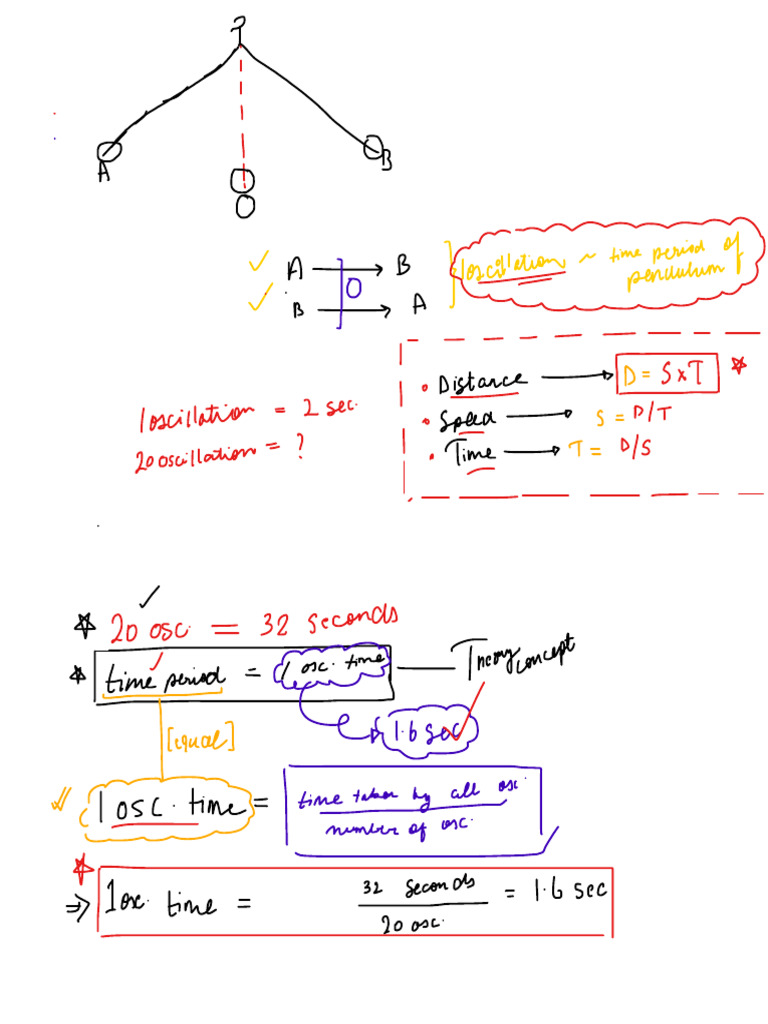 A
B
O
A → B
B → A
O
1 oscillation ~ time period of
pendulum
• Distance → D = S x T
• Speed → S = D/T
• Time → T = D/S
1 oscillation = 2 sec.
20 oscillation = ?
20 osc. = 32 seconds
time period = 1 osc. time — Theory concept
1.6 sec
[equal]
1 osc. time = time taken by all osc.
number of osc.
⇒ 1 osc. time = 32 seconds = 1.6 sec
20 osc.